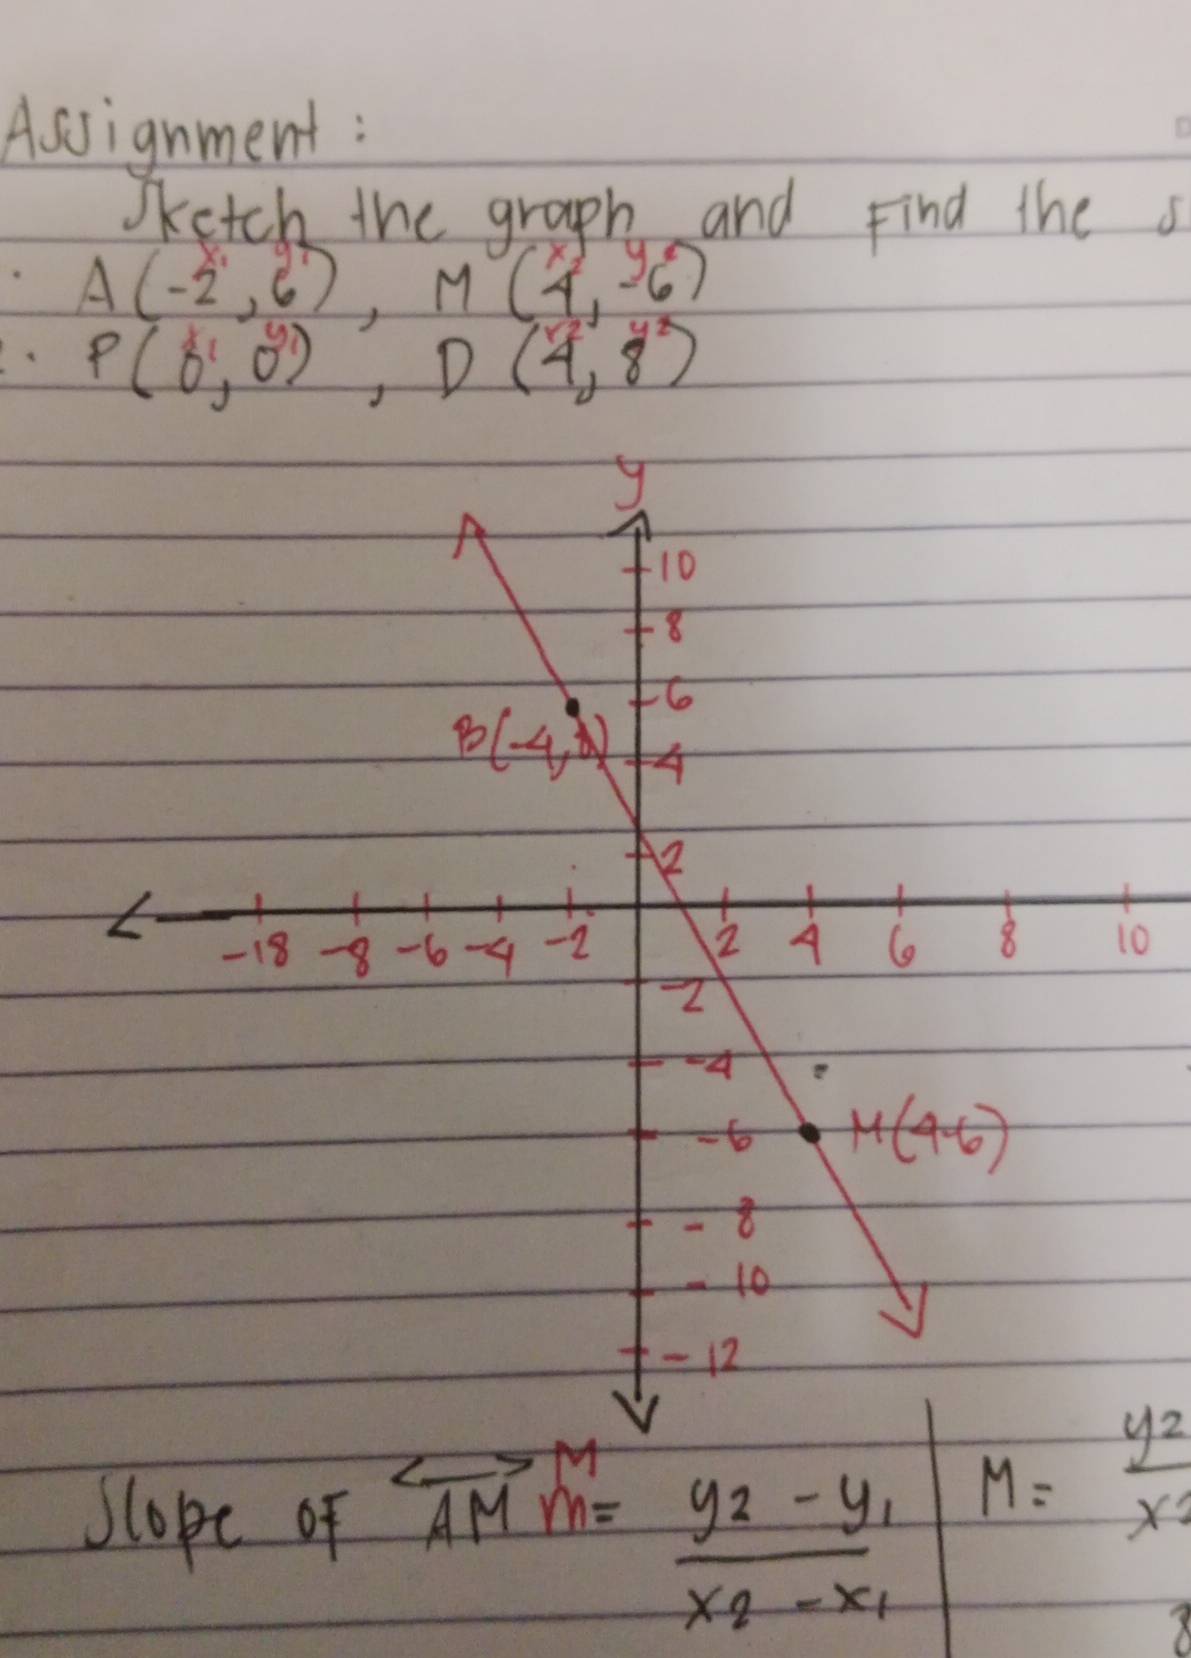 Assignment :
Sketch the graph and Find the s
. A(-2, 6) , M (4, -6)
x₁ y₁ x₂ y₂
. P(0, 0) , D (4, 8)
x₁ y₁ x₂ y₂
y
10
8
6
B(-4, 4
2
-18 -8 -6 -4 -2 2 4 6 8 10
-2
-4
-6 M(4-6)
- 8
- 10
- 12
M
Slope of AM m= y2 - y₁ M = y2
x2 - x₁ x2
8